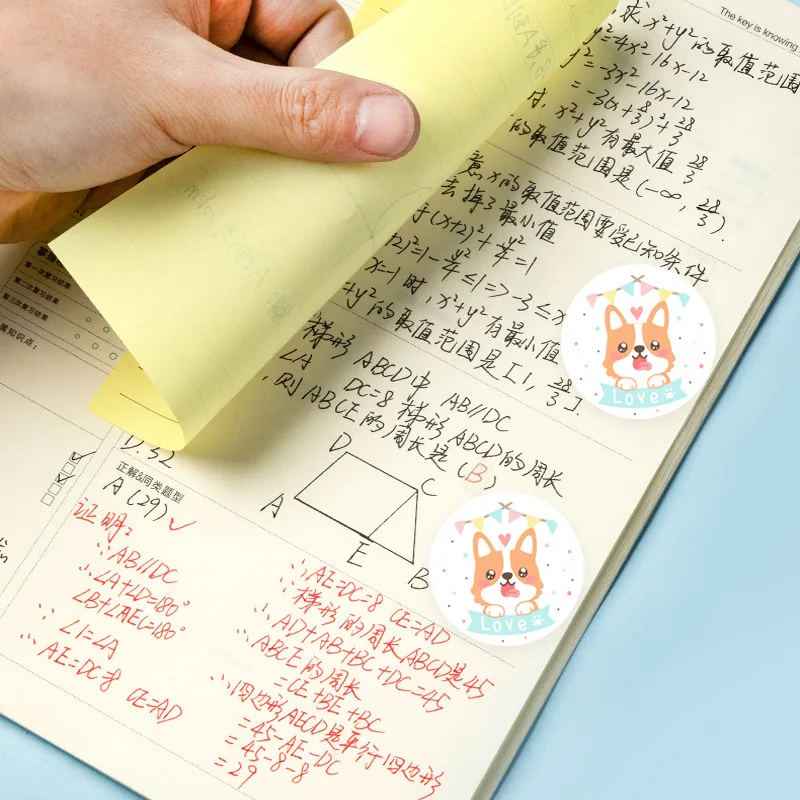 The key is knowing
求x²+y²的取值范围
y²=4x²-16x-12
y²=-3x²-16x-12
=-3(x+8/3)²+28/3
时, x²+y²有最大值 28/3
的取值范围是(-∞, 28/3).
意x的取值范围要受已知条件
去掉了最小值
于(x+2)²+y²/4=1
+2)²=1-y²/4≤1=>-3≤x
x=-1时, x²+y²有最小值
+y²的取值范围是[1, 28/3].
第一次复习结果
第二次复习结果
第三次复习结果
属知识点:
梯形ABCD中 AB//DC
∠A DC=8 梯形ABCD的周长
,则ABCE的周长是(B)
D. 32
正解&同类题型
A (29) ✓
D
C
A
E
B
证明:
∵AB//DC
∴∠A+∠D=180°
∠B+∠AEC=180°
∵∠1=∠A
∴AE=DC=8 CE=AD
∴AE=DC=8 CE=AD
∵梯形的周长ABCD是45
∴AD+AB+BC+DC=45
∴ABCE的周长
=CE+BE+BC
∴四边形AECD是平行四边形
=45-AE-DC
=45-8-8
=29
Love
Love